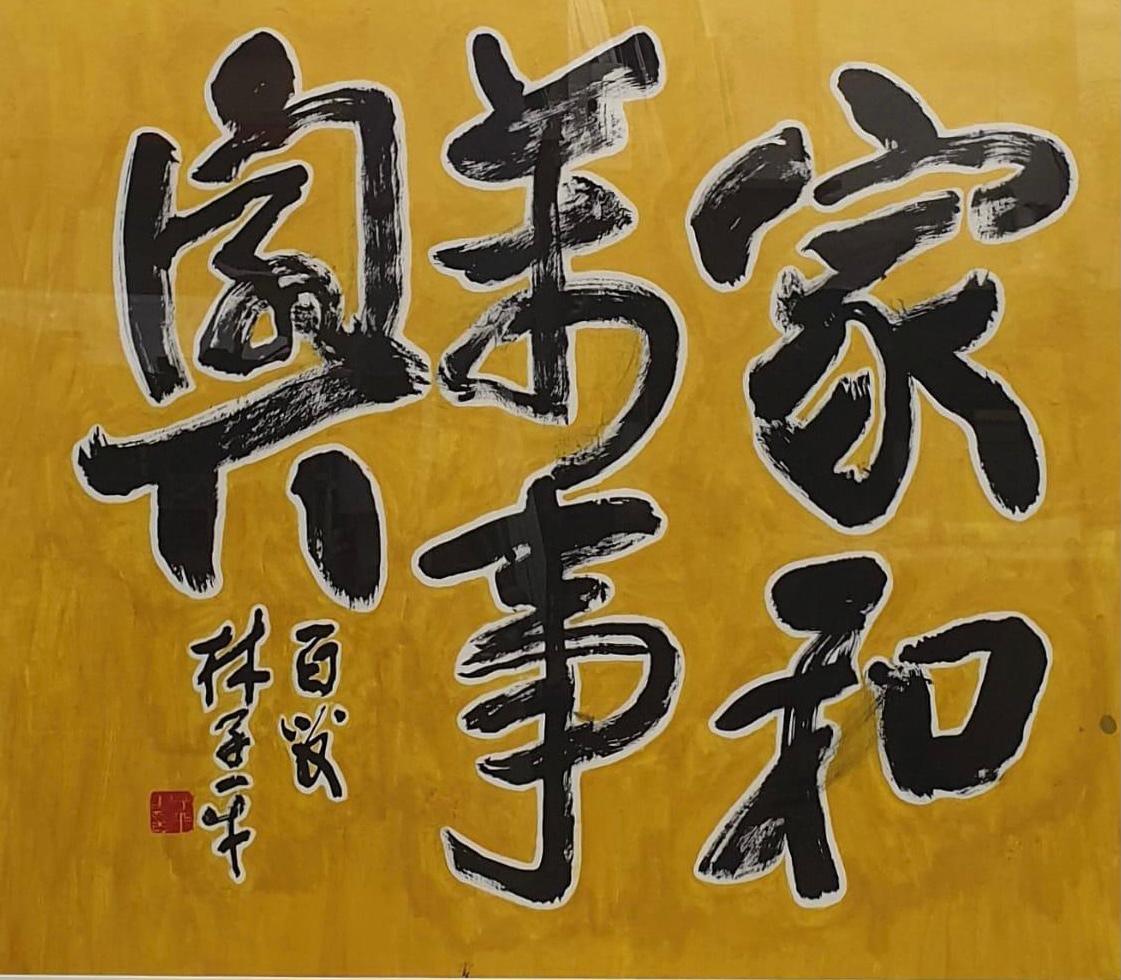 家和
萬事
興
百岁
林子一牛